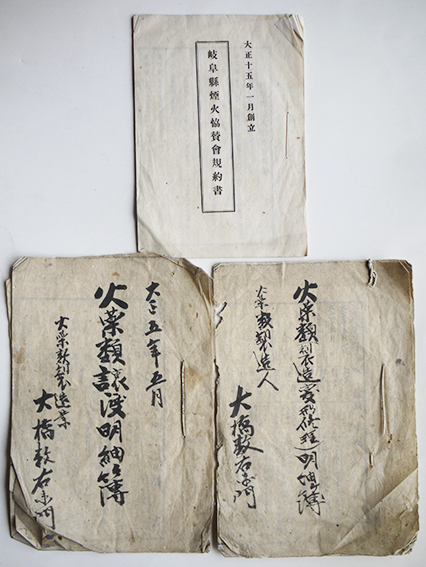 大正十五年一月創立
岐阜縣煙火協賛會規約書
大正五年五月
火薬類譲渡明細簿
火薬類製造業
大橋数右衛門
火薬類製造変形修理明細簿
火薬類製造人
大橋数右衛門